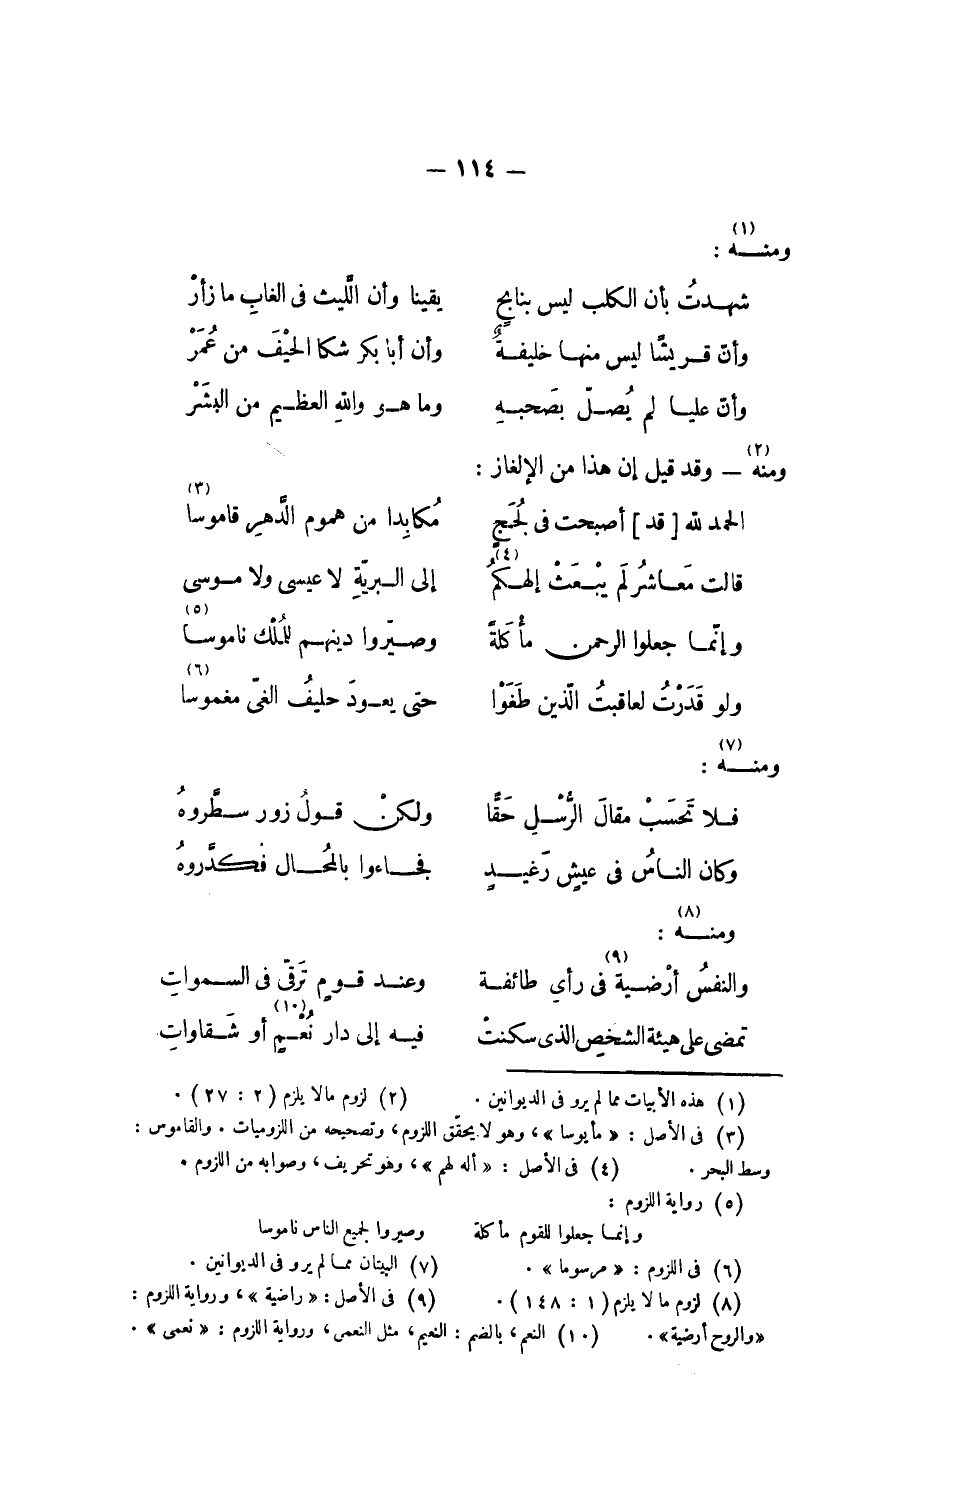 — ١١٤ —
ومنـــه (١) :
شهـدتُ بأن الكلب ليس بنابحٍ يقينا وأن اللَّيث فى الغابِ ما زأرْ
وأنّ قـريشًا ليس منهـا خليفـةٌ وأن أبا بكر شكا الحيْفَ من عُمَرْ
وأنّ عليـا لم يُصـلّ بصَحبـهِ وما هـو واللهِ العظـيم من البشَرْ
ومنه (٢) — وقد قيل إن هذا من الإلغاز :
الحمد لله [ قد ] أصبحت فى لُجَجٍ مُكابِدا من هموم الدَّهرِ قاموسا (٣)
قالت مَعـاشرُ لَم يبْـعَثْ إلهـكمُ (٤) إلى الـبريّةِ لا عيسى ولا مـوسى
وإنّمـا جعلوا الرحمن مأْكَلةً وصـيّروا دينهـم للمُلْك ناموسـا (٥)
ولو قَدَرْتُ لعاقبتُ الّذين طَغَوْا حتى يعـودَ حليفُ الغىّ مغموسا (٦)
ومنـــه (٧) :
فـلا تحسَبْ مقالَ الرُّسْـلِ حَقًّا ولكنْ قـولُ زور سـطَّروهُ
وكان النـاسُ فى عيشٍ رَغيـــدٍ فجـــاءوا بالمُحـال فكـدَّروهُ
ومنـــه (٨) :
والنفسُ أرْضـية (٩) فى رأي طائفـة وعنـد قـومٍ تَرقّى فى السـمواتِ
تمضى على هيئة الشخصِ الذى سكنتْ فيـه إلى دار نُعْـمٍ (١٠) أو شَـقاواتِ
(١) هذه الأبيات مما لم يرو فى الديوانين . (٢) لزوم مالا يلزم ( ٢ : ٢٧ ) .
(٣) فى الأصل : « مأيوسا »، وهو لا يحقّق اللزوم، وتصحيحه من اللزوميات . والقاموس :
وسط البحر . (٤) فى الأصل : « أله لهم »، وهو تحريف، وصوابه من اللزوم .
(٥) رواية اللزوم :
وإنمـا جعلوا للقوم مأكلة وصيروا لجميع الناس ناموسا
(٦) فى اللزوم : « مرسوما » . (٧) البيتان ممـا لم يرو فى الديوانين .
(٨) لزوم ما لا يلزم ( ١ : ١٤٨ ) . (٩) فى الأصل : « راضية »، ورواية اللزوم :
« والروح أرضية » . (١٠) النعم، بالضم : النعيم، مثل النعمى، ورواية اللزوم : « نعمى » .